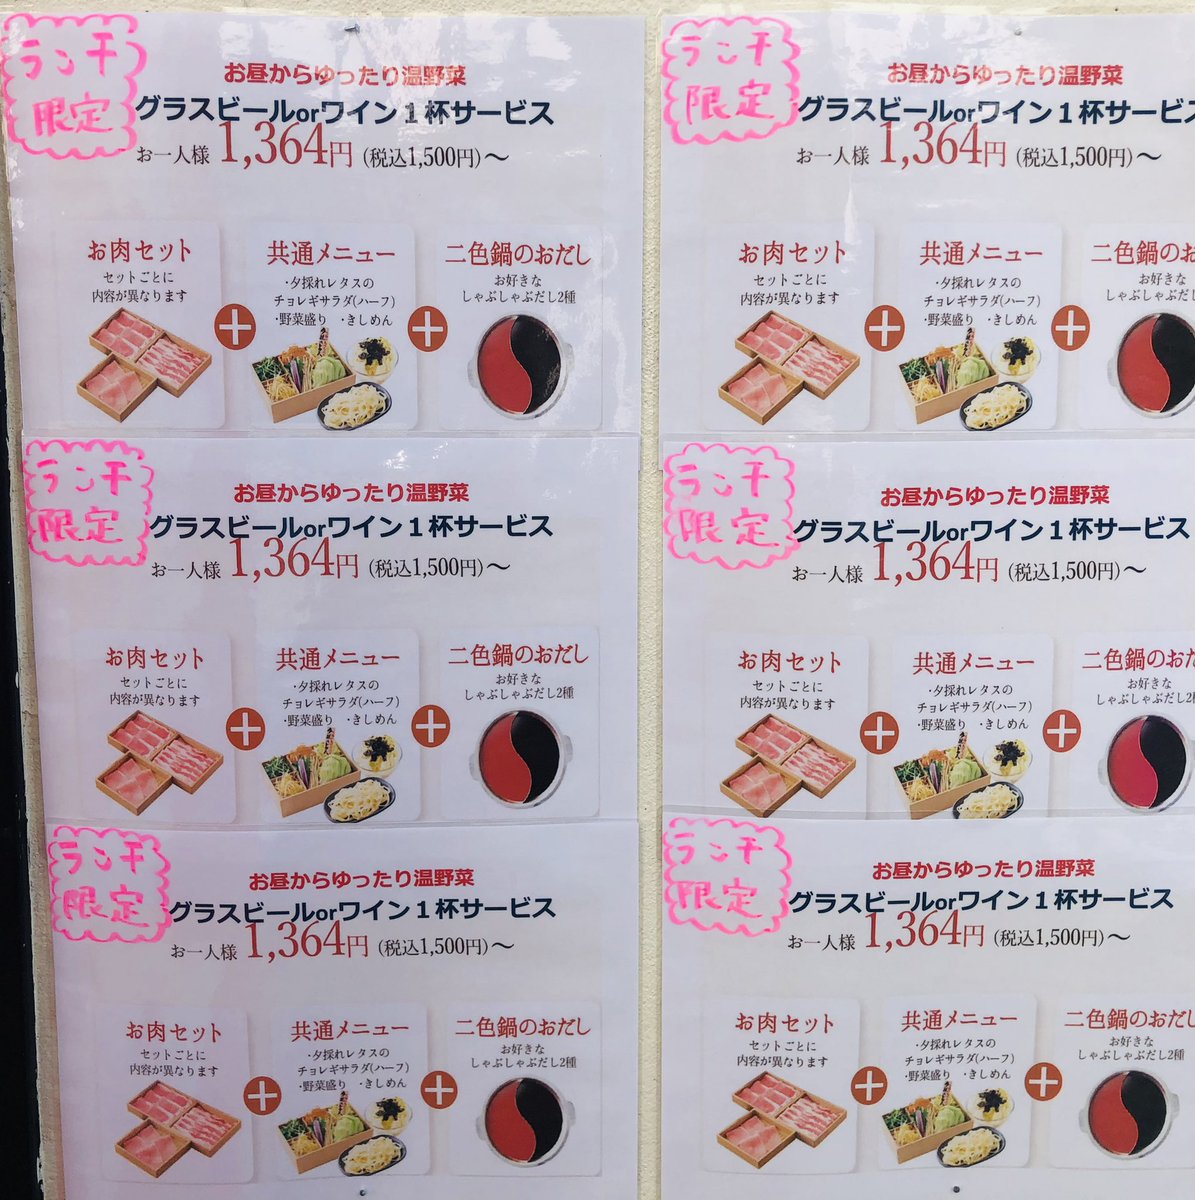 ランチ
限定
お昼からゆったり温野菜
グラスビールorワイン１杯サービス
お一人様 1,364円 (税込1,500円)～
お肉セット
セットごとに
内容が異なります
共通メニュー
・夕採れレタスの
チョレギサラダ(ハーフ)
・野菜盛り ・きしめん
二色鍋のおだし
お好きな
しゃぶしゃぶだし2種
ランチ
限定
お昼からゆったり温野菜
グラスビールorワイン１杯サービス
お一人様 1,364円 (税込1,500円)～
お肉セット
セットごとに
内容が異なります
共通メニュー
・夕採れレタスの
チョレギサラダ(ハーフ)
・野菜盛り ・きしめん
二色鍋のお
お好きな
しゃぶしゃぶだし
ランチ
限定
お昼からゆったり温野菜
グラスビールorワイン１杯サービス
お一人様 1,364円 (税込1,500円)～
お肉セット
セットごとに
内容が異なります
共通メニュー
・夕採れレタスの
チョレギサラダ(ハーフ)
・野菜盛り ・きしめん
二色鍋のおだし
お好きな
しゃぶしゃぶだし2種
ランチ
限定
お昼からゆったり温野菜
グラスビールorワイン１杯サービス
お一人様 1,364円 (税込1,500円)～
お肉セット
セットごとに
内容が異なります
共通メニュー
・夕採れレタスの
チョレギサラダ(ハーフ)
・野菜盛り ・きしめん
二色鍋のおだ
お好きな
しゃぶしゃぶだし2種
ランチ
限定
お昼からゆったり温野菜
グラスビールorワイン１杯サービス
お一人様 1,364円 (税込1,500円)～
お肉セット
セットごとに
内容が異なります
共通メニュー
・夕採れレタスの
チョレギサラダ(ハーフ)
・野菜盛り ・きしめん
二色鍋のおだし
お好きな
しゃぶしゃぶだし2種
ランチ
限定
お昼からゆったり温野菜
グラスビールorワイン１杯サービス
お一人様 1,364円 (税込1,500円)～
お肉セット
セットごとに
内容が異なります
共通メニュー
・夕採れレタスの
チョレギサラダ(ハーフ)
・野菜盛り ・きしめん
二色鍋のおだし
お好きな
しゃぶしゃぶだし2種